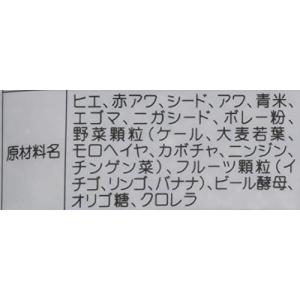 原材料名
ヒエ、赤アワ、シード、アワ、青米、
エゴマ、ニガシード、ボレー粉、
野菜顆粒(ケール、大麦若葉、
モロヘイヤ、カボチャ、ニンジン、
チンゲン菜)、フルーツ顆粒(イ
チゴ、リンゴ、バナナ)、ビール酵母、
オリゴ糖、クロレラ